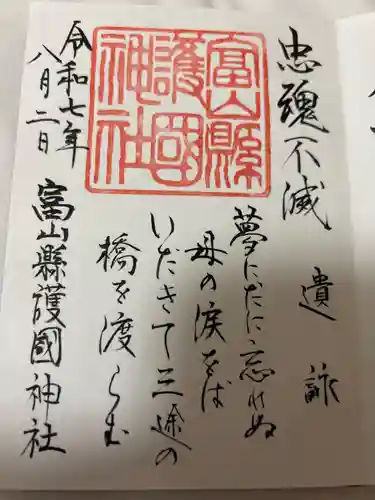 忠魂不滅
遺詠
夢にだに忘れぬ
母の涙をば
いだきて三途の
橋を渡らむ
富山縣
護國
神社
令和七年
八月二日
富山縣護國神社